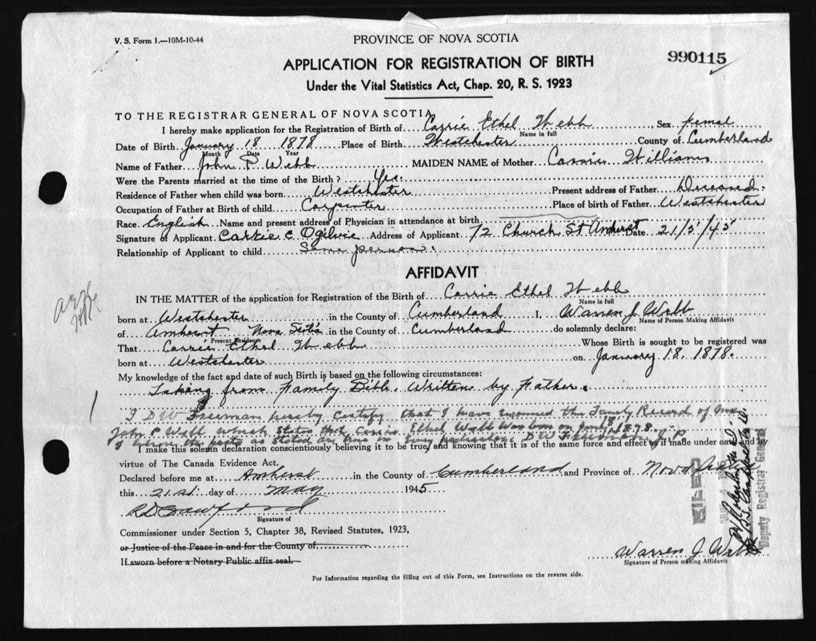 V. S. Form 1.—10M-10-44
PROVINCE OF NOVA SCOTIA
990115
APPLICATION FOR REGISTRATION OF BIRTH
Under the Vital Statistics Act, Chap. 20, R. S. 1923
TO THE REGISTRAR GENERAL OF NOVA SCOTIA
I hereby make application for the Registration of Birth of Carrie Ethel Webb, Sex Femal
Name in full
Date of Birth January 18 1878 Place of Birth Westchester County of Cumberland
Month Date Year
Name of Father John P Webb MAIDEN NAME of Mother Cassie Williams
Were the Parents married at the time of the Birth? Yes.
Residence of Father when child was born Westchester Present address of Father Deceased.
Occupation of Father at Birth of child Carpenter Place of birth of Father Westchester
Race English Name and present address of Physician in attendance at birth
Signature of Applicant Carrie E Ogilvie Address of Applicant 72 Church St Amherst Date 21/5/45
Relationship of Applicant to child Same person.
AFFIDAVIT
IN THE MATTER of the application for Registration of the Birth of Carrie Ethel Webb
Name in full
born at Westchester in the County of Cumberland I, Warren J. Webb
Name of Person Making Affidavit
of Amherst Nova Scotia in the County of Cumberland do solemnly declare:
Present Residence
That Carrie Ethel Webb Whose Birth is sought to be registered was
born at Westchester on January 18, 1878.
My knowledge of the fact and date of such Birth is based on the following circumstances:
Taking from Family Bible. Written by Father.
I D W Freeman hereby certify that I have examined the Family Record of
John P Webb which states that Carrie Ethel Webb was born on 18 1878.
I believe the party as stated in this application D W Freeman J P
I make this solemn declaration conscientiously believing it to be true, and knowing that it is of the same force and effect as if made under oath and by
virtue of The Canada Evidence Act.
Declared before me at Amherst in the County of Cumberland and Province of Nova Scotia
this 21st day of May 1945
Signature of
Commissioner under Section 5, Chapter 38, Revised Statutes, 1923,
or Justice of the Peace in and for the County of
If sworn before a Notary Public affix seal.
Warren J. Webb
Signature of Person making Affidavit
Deputy Registrar General
For Information regarding the filling out of this Form, see Instructions on the reverse side.